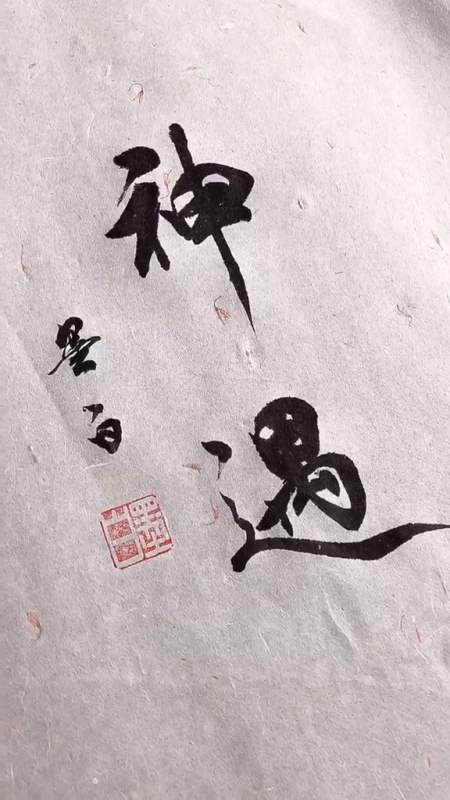 神遇
墨白